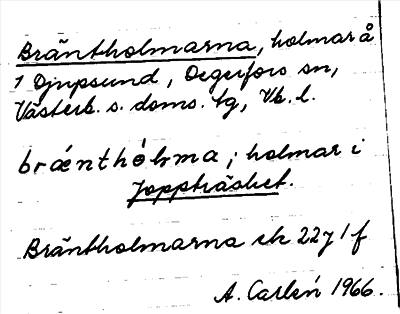 Bräntholmarna, holmar å
1 Djupsund, Degerfors sn,
Västerb. s. doms. tg, Vb. l.
brænthólma; holmar i
Joppträsket.
Bräntholmarna ek 22 J 1 f
A. Carlén 1966.